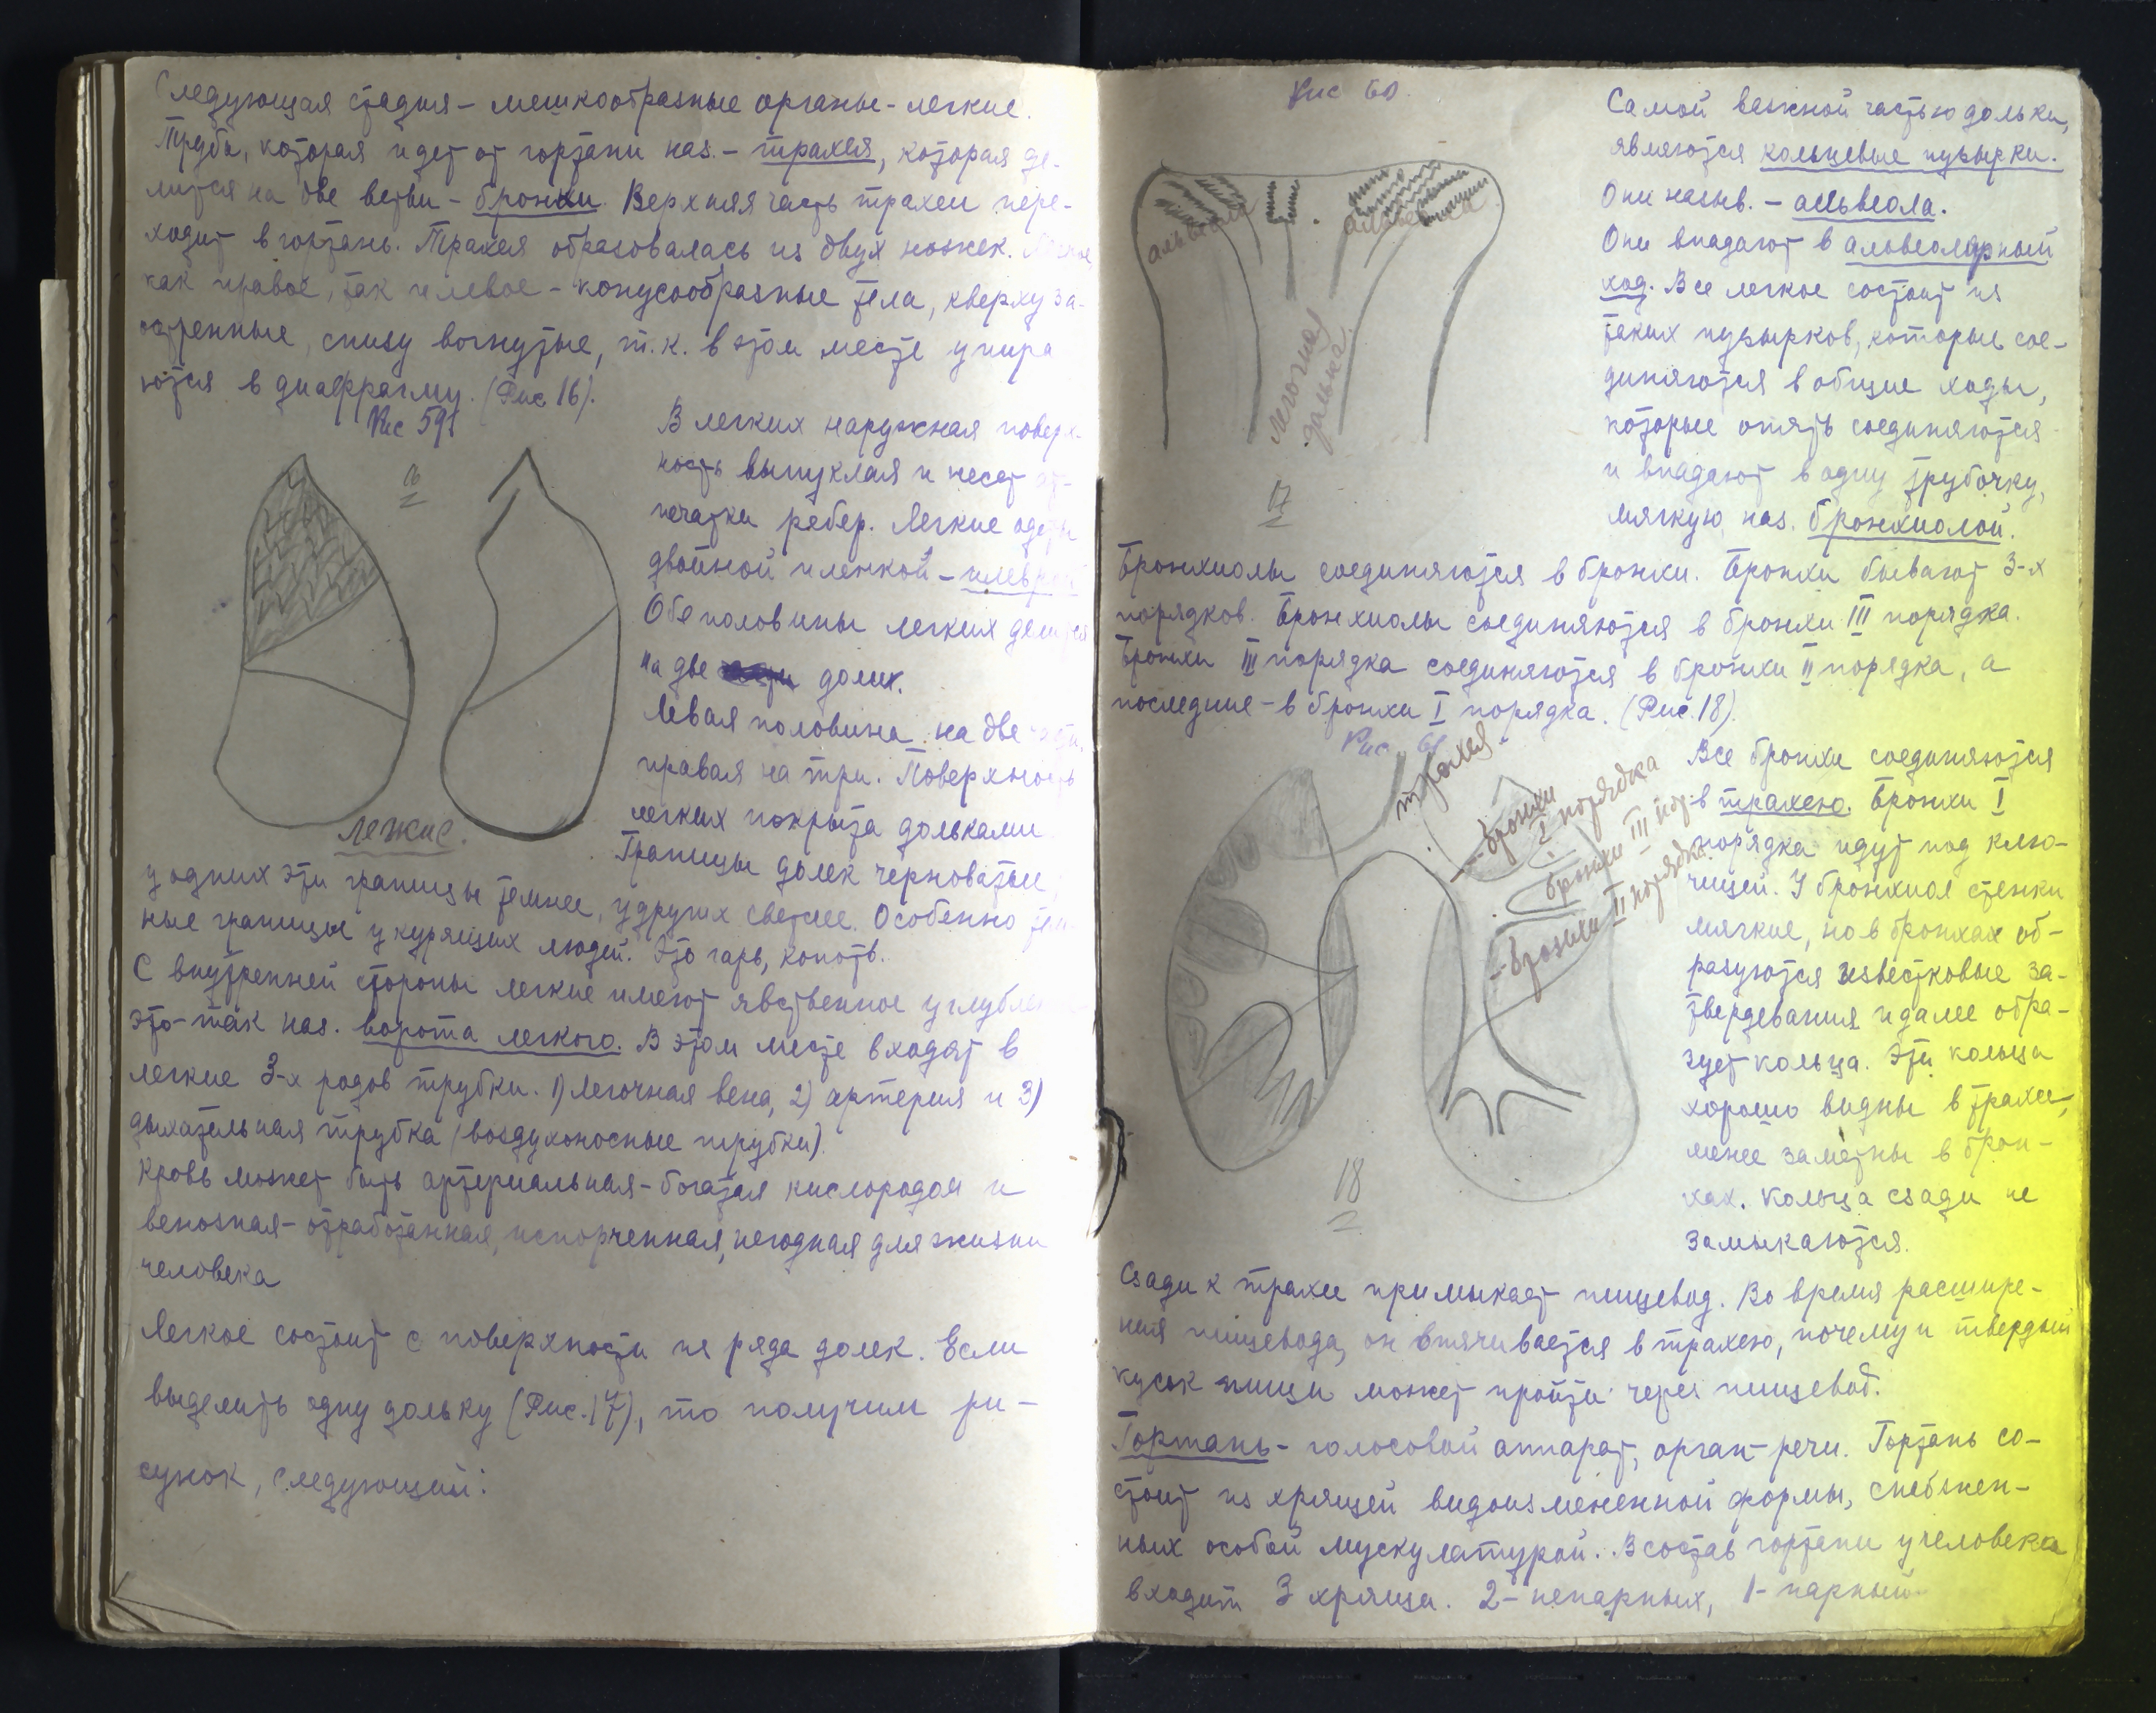 Следующая стадия – мешкообразные органы – легкие.
Труба, которая идет от гортани наз. – трахея, которая де-
лится на две ветви – бронхи. Верхняя часть трахеи пере-
ходит в гортань. Трахея образовалась из двух ножек. Легкое
как правое, так и левое – конусообразные тела, кверху за-
остренные, снизу вогнутые, т.к. в этом месте упира
ются в диафрагму. (Рис 16).
Рис 591
16
В легких наружная поверх-
ность выпуклая и несет от-
печатки ребер. Легкие одеты
двойной пленкой – плеврой
Обе половины легких делятся
на две долих.
Левая половина на две части,
правая на три. Поверхность
легких покрыта дольками
Границы долек черноватые,
легкие.
у одних эти границы темнее, у других светлее. Особенно тем-
ные границы у курящих людей. Это гарь, копоть.
С внутренней стороны легкие имеют явственное углубление
это так наз. ворота легкого. В этом месте входят в
легкие 3-х родов трубки. 1) Легочная вена, 2) артерия и 3)
дыхательная трубка (воздухоносные трубки).
Кровь может быть артериальная – богатая кислородом и
венозная – отработанная, испорченная, негодная для жизни
человека
Легкое состоит с поверхности из ряда долек. Если
выделить одну дольку (Рис. 17), то получим ри-
сунок, следующий:
Рис 60
альвеола
альвеола
легочная
долька
17
Самой важной частью дольки,
являются кольцевые пузырки.
Они назыв. – альвеола.
Они впадают в альвеолярный
ход. Все легкое состоит из
таких пузырков, которые сое-
диняются в общие ходы,
которые опять соединяются
и впадают в одну трубочку,
мягкую, наз. бронхиолой.
Бронхиолы соединяются в бронхи. Бронхи бывают 3-х
порядков. Бронхиолы соединяются в бронхи III порядка.
Бронхи III порядка соединяются в бронхи II порядка, а
последние – в бронхи I порядка. (Рис. 18).
Рис. 61
трахея
бронхи
I порядка
бронхи III пор.
бронхи II порядка.
18
Все бронхи соединяются
в трахею. Бронхи I
порядка идут под клю-
чицей. У бронхиол стенки
мягкие, но в бронхах об-
разуются известковые за-
твердевания и далее обра-
зует кольца. Эти кольца
хорошо видны в трахее,
менее заметны в брон-
хах. Кольца сзади не
замыкаются.
Сзади к трахее примыкает пищевод. Во время расшире-
ния пищевода, он втячивается в трахею, почему и твердый
кусок пищи может пройти через пищевод.
Гортань – голосовой аппарат, орган речи. Гортань со-
стоит из хрящей видоизмененной формы, снабжен-
ных особой мускулатурой. В состав гортани у человека
входит 3 хряща. 2 – непарных, 1 – парный